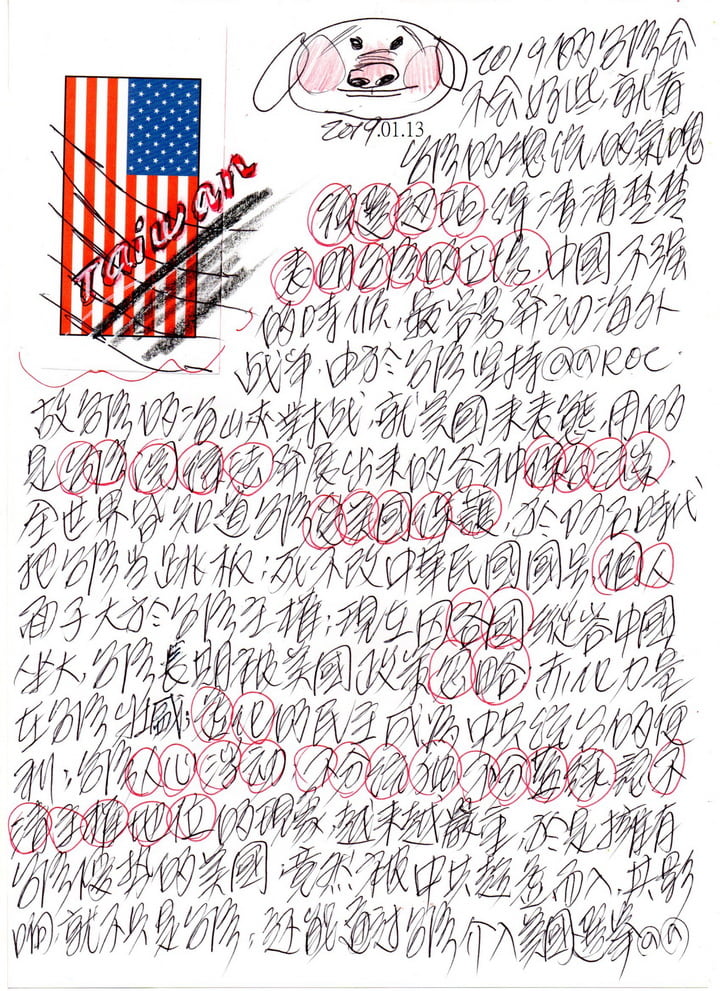 2019的台灣會
不會好些,就看
2019.01.13
台灣的總統的
Taiwan
得清清楚楚
表明台灣的立場,中國不強
的時候,最容易發動海外
战爭,由於台灣坚持@@ROC
故台灣的 對战,就美國来表態,用的
是台灣關係法 所展出来的各种
全世界皆知道台灣受美國保護,於 時代
把台灣当跳板;死不改中華民國國号,個人
面子大於台灣主權;現在因各國縱容中國
坐大,台灣長期被美國政策忽略,赤化力量
在台灣壯盛; 的民主成為中共統台的便
利;台灣人心浮动,不分 不分藍綠,認不
清主權地位的現象,越来越嚴重,於是擁有
台灣優勢的美國,竟然被中共趁虛而入,其影
响,就不只是台灣,还能通过台灣介入美國選举@@